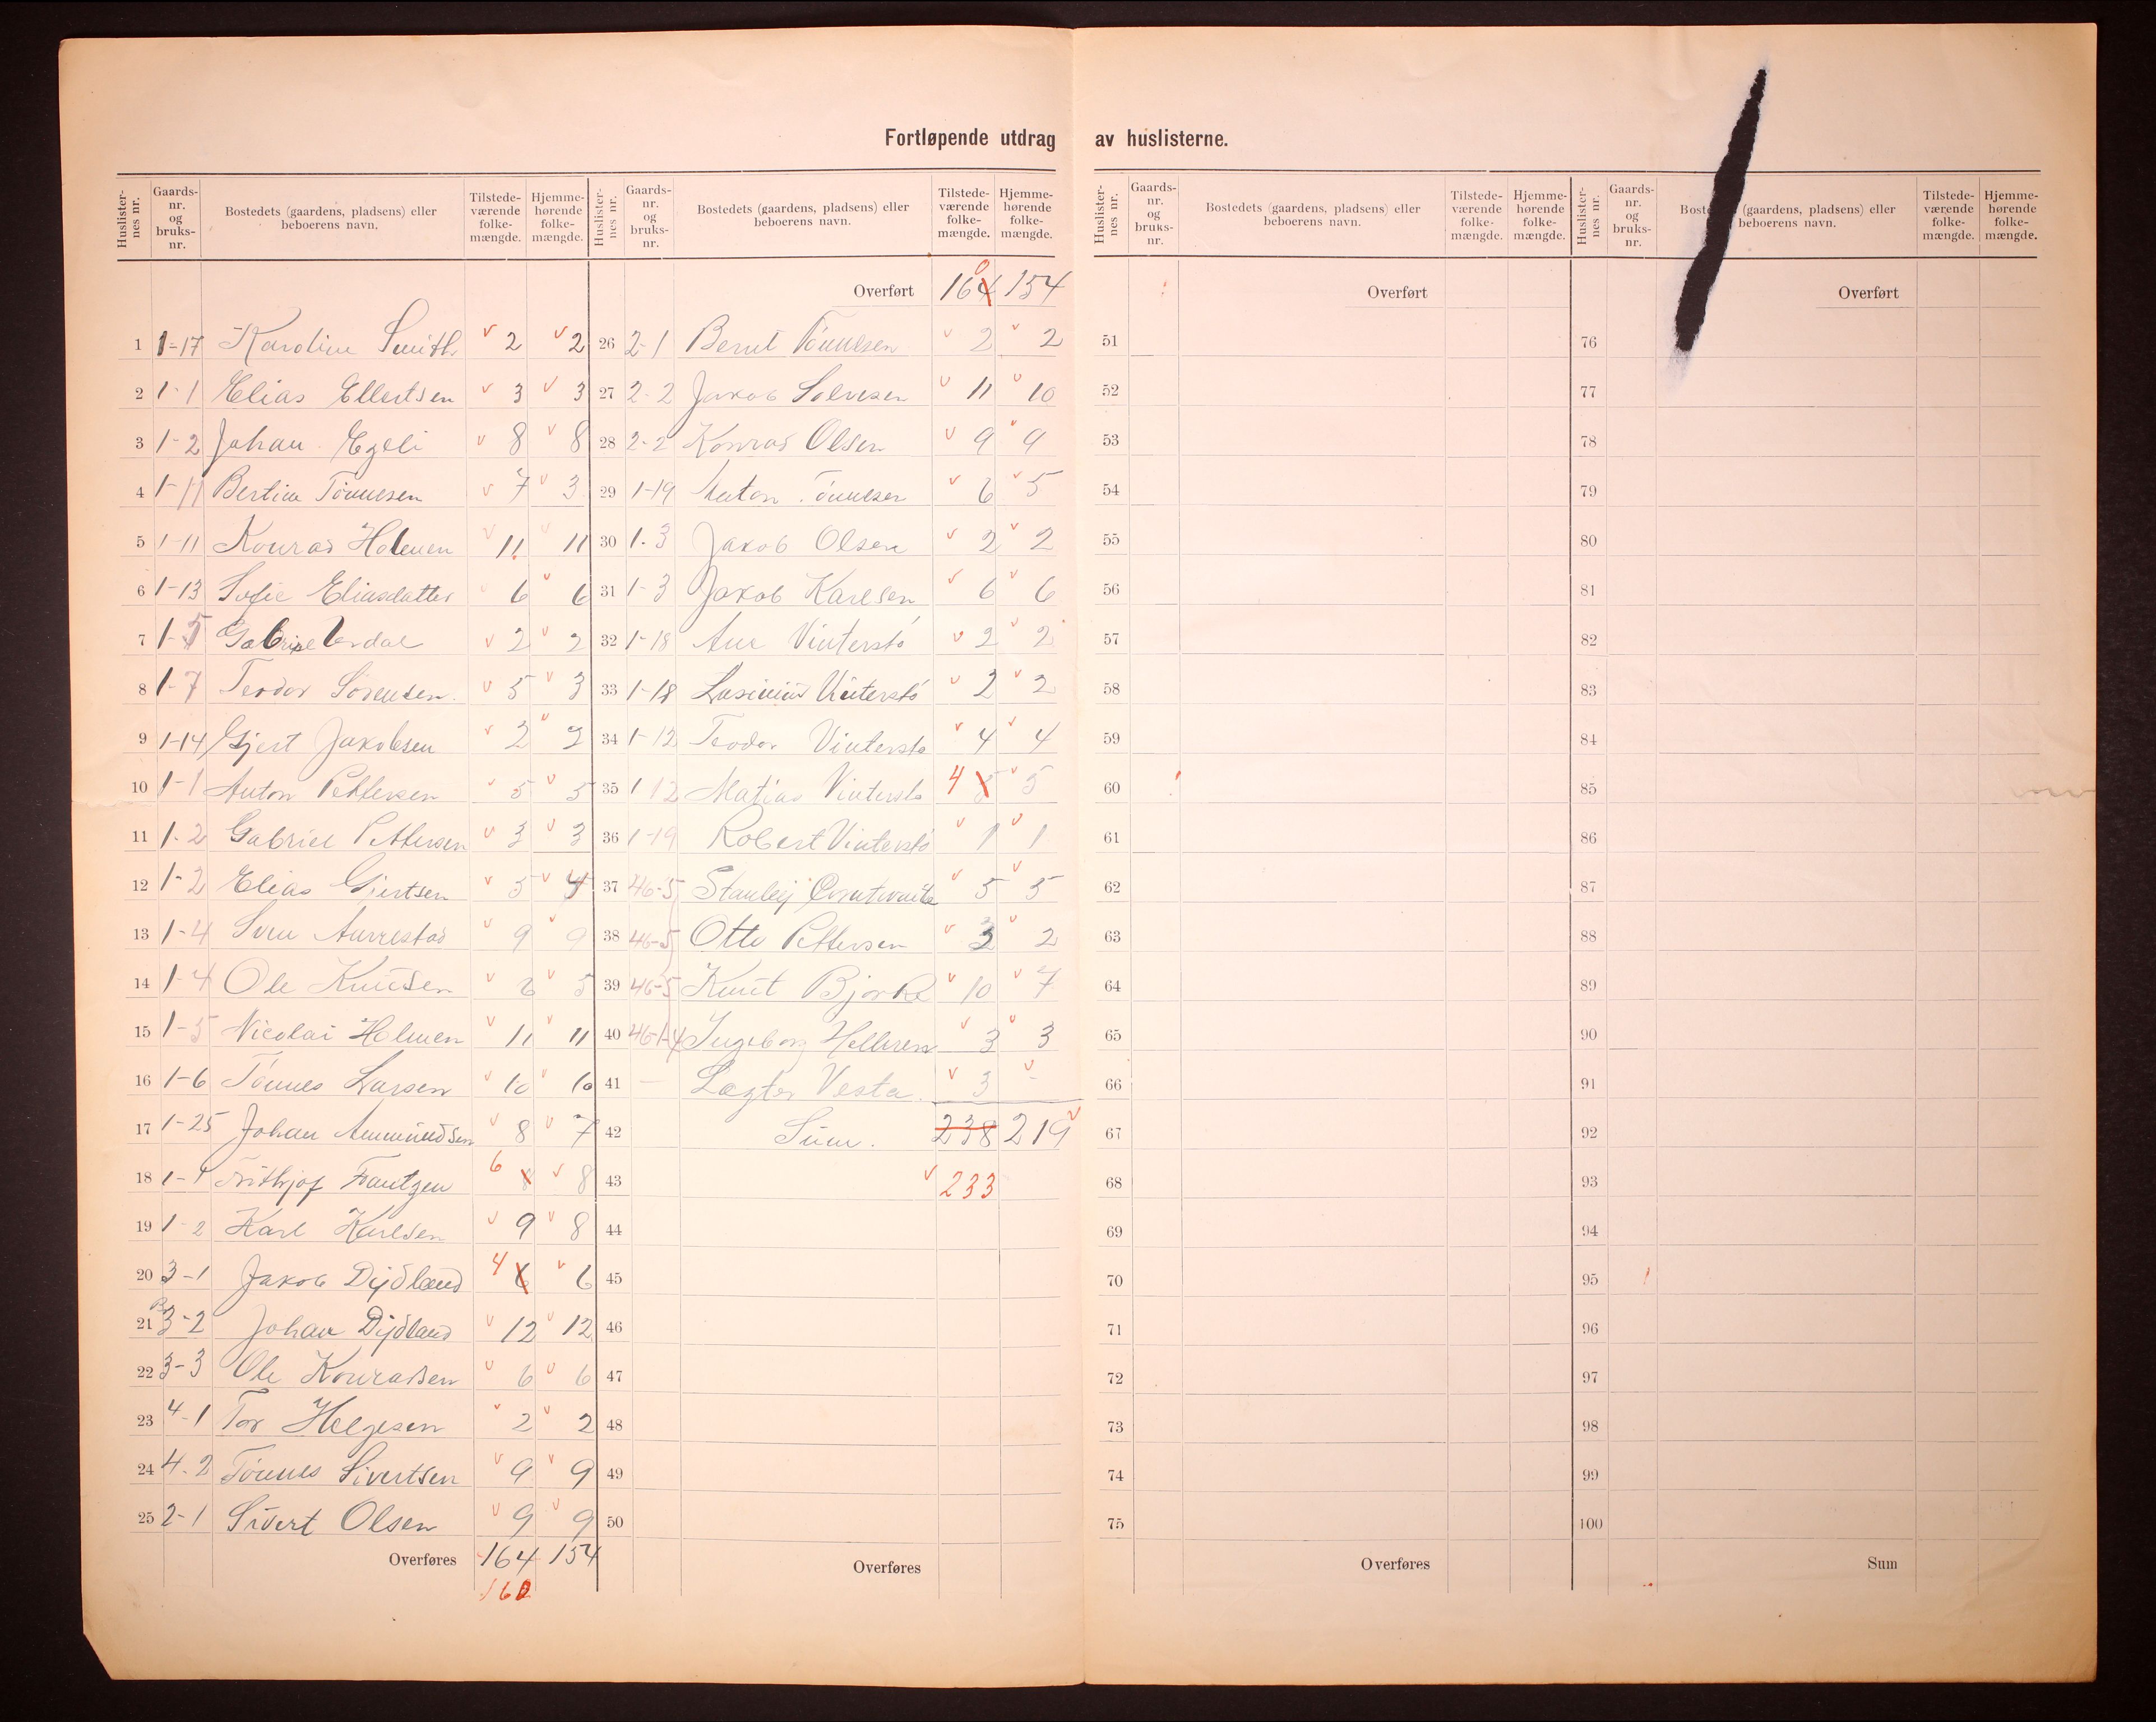 Fortløpende utdrag av huslisterne.
Huslisternes nr. Gaardsnr. og bruksnr. Bostedets (gaardens, pladsens) eller beboerens navn. Tilstedeværende folkemængde. Hjemmehørende folkemængde.
1 1-17 Karoline Smith 2 2
2 1-1 Elias Ellertsen 3 3
3 1-2 Johan Egeli 8 8
4 1-11 Bertine Tönnesen 7 3
5 1-11 Konrad Holmen 11 11
6 1-13 Sofie Eliasdatter 6 6
7 1-5 Gabriel 2 2
8 1-7 Teodor Sörensen. 5 3
9 1-14 Gjert Jakobsen 2 2
10 1-1 Anton Pettersen 5 5
11 1-2 Gabriel Pettersen 3 3
12 1-2 Elias Gjertsen 5 4
13 1-4 Aurrestad 9 9
14 1-4 Ole Knutsen 6 5
15 1-5 Nicolai Holmen 11 11
16 1-6 Tönnes Larsen 10 10
17 1-25 Johan Ammundsen 8 7
18 1-1 Frithjof Frantzen 6 8 8
19 1-2 Karl Karlsen 9 8
20 3-1 Jakob Dydland 4 6 6
21 3-2 Johan Dydland 12 12
22 3-3 Ole Konradsen 6 6
23 4-1 Tor Helgesen 2 2
24 4-2 Tönnes Sivertsen 9 9
25 2-1 Sivert Olsen 9 9
Overføres 164 154
160
Huslisternes nr. Gaardsnr. og bruksnr. Bostedets (gaardens, pladsens) eller beboerens navn. Tilstedeværende folkemængde. Hjemmehørende folkemængde.
Overført 164 0 154
26 2-1 Bernt Tönnesen 2 2
27 2-2 Jakob Salvesen 11 10
28 2-2 Konrad Olsen 9 9
29 1-19 Anton Tönnesen 6 5
30 1-3 Jakob Olsen 2 2
31 1-3 Jakob Karlsen 6 6
32 1-18 Ane Vinterstö 2 2
33 1-18 Vinterstö 2 2
34 1-12 Teodor Vinterstö 4 4
35 1-12 Matias Vinterstö 4 5 5
36 1-19 Robert Vinterstö 1 1
37 46-5 Stanley 5 5
38 46-5 Otto Pettersen 3 2
39 46-5 Knut Bjorke 10 7
40 46-1-4 Ingeborg Helleren 3 3
41 — Lægter Vesta. 3 -
42 Sum. 238 219
43 233
44
45
46
47
48
49
50
Overføres
Huslisternes nr. Gaardsnr. og bruksnr. Bostedets (gaardens, pladsens) eller beboerens navn. Tilstedeværende folkemængde. Hjemmehørende folkemængde.
Overført
51
52
53
54
55
56
57
58
59
60
61
62
63
64
65
66
67
68
69
70
71
72
73
74
75
Overføres
Huslisternes nr. Gaardsnr. og bruksnr. (gaardens, pladsens) eller beboerens navn. Tilstedeværende folkemængde. Hjemmehørende folkemængde.
Overført
76
77
78
79
80
81
82
83
84
85
86
87
88
89
90
91
92
93
94
95
96
97
98
99
100
Sum